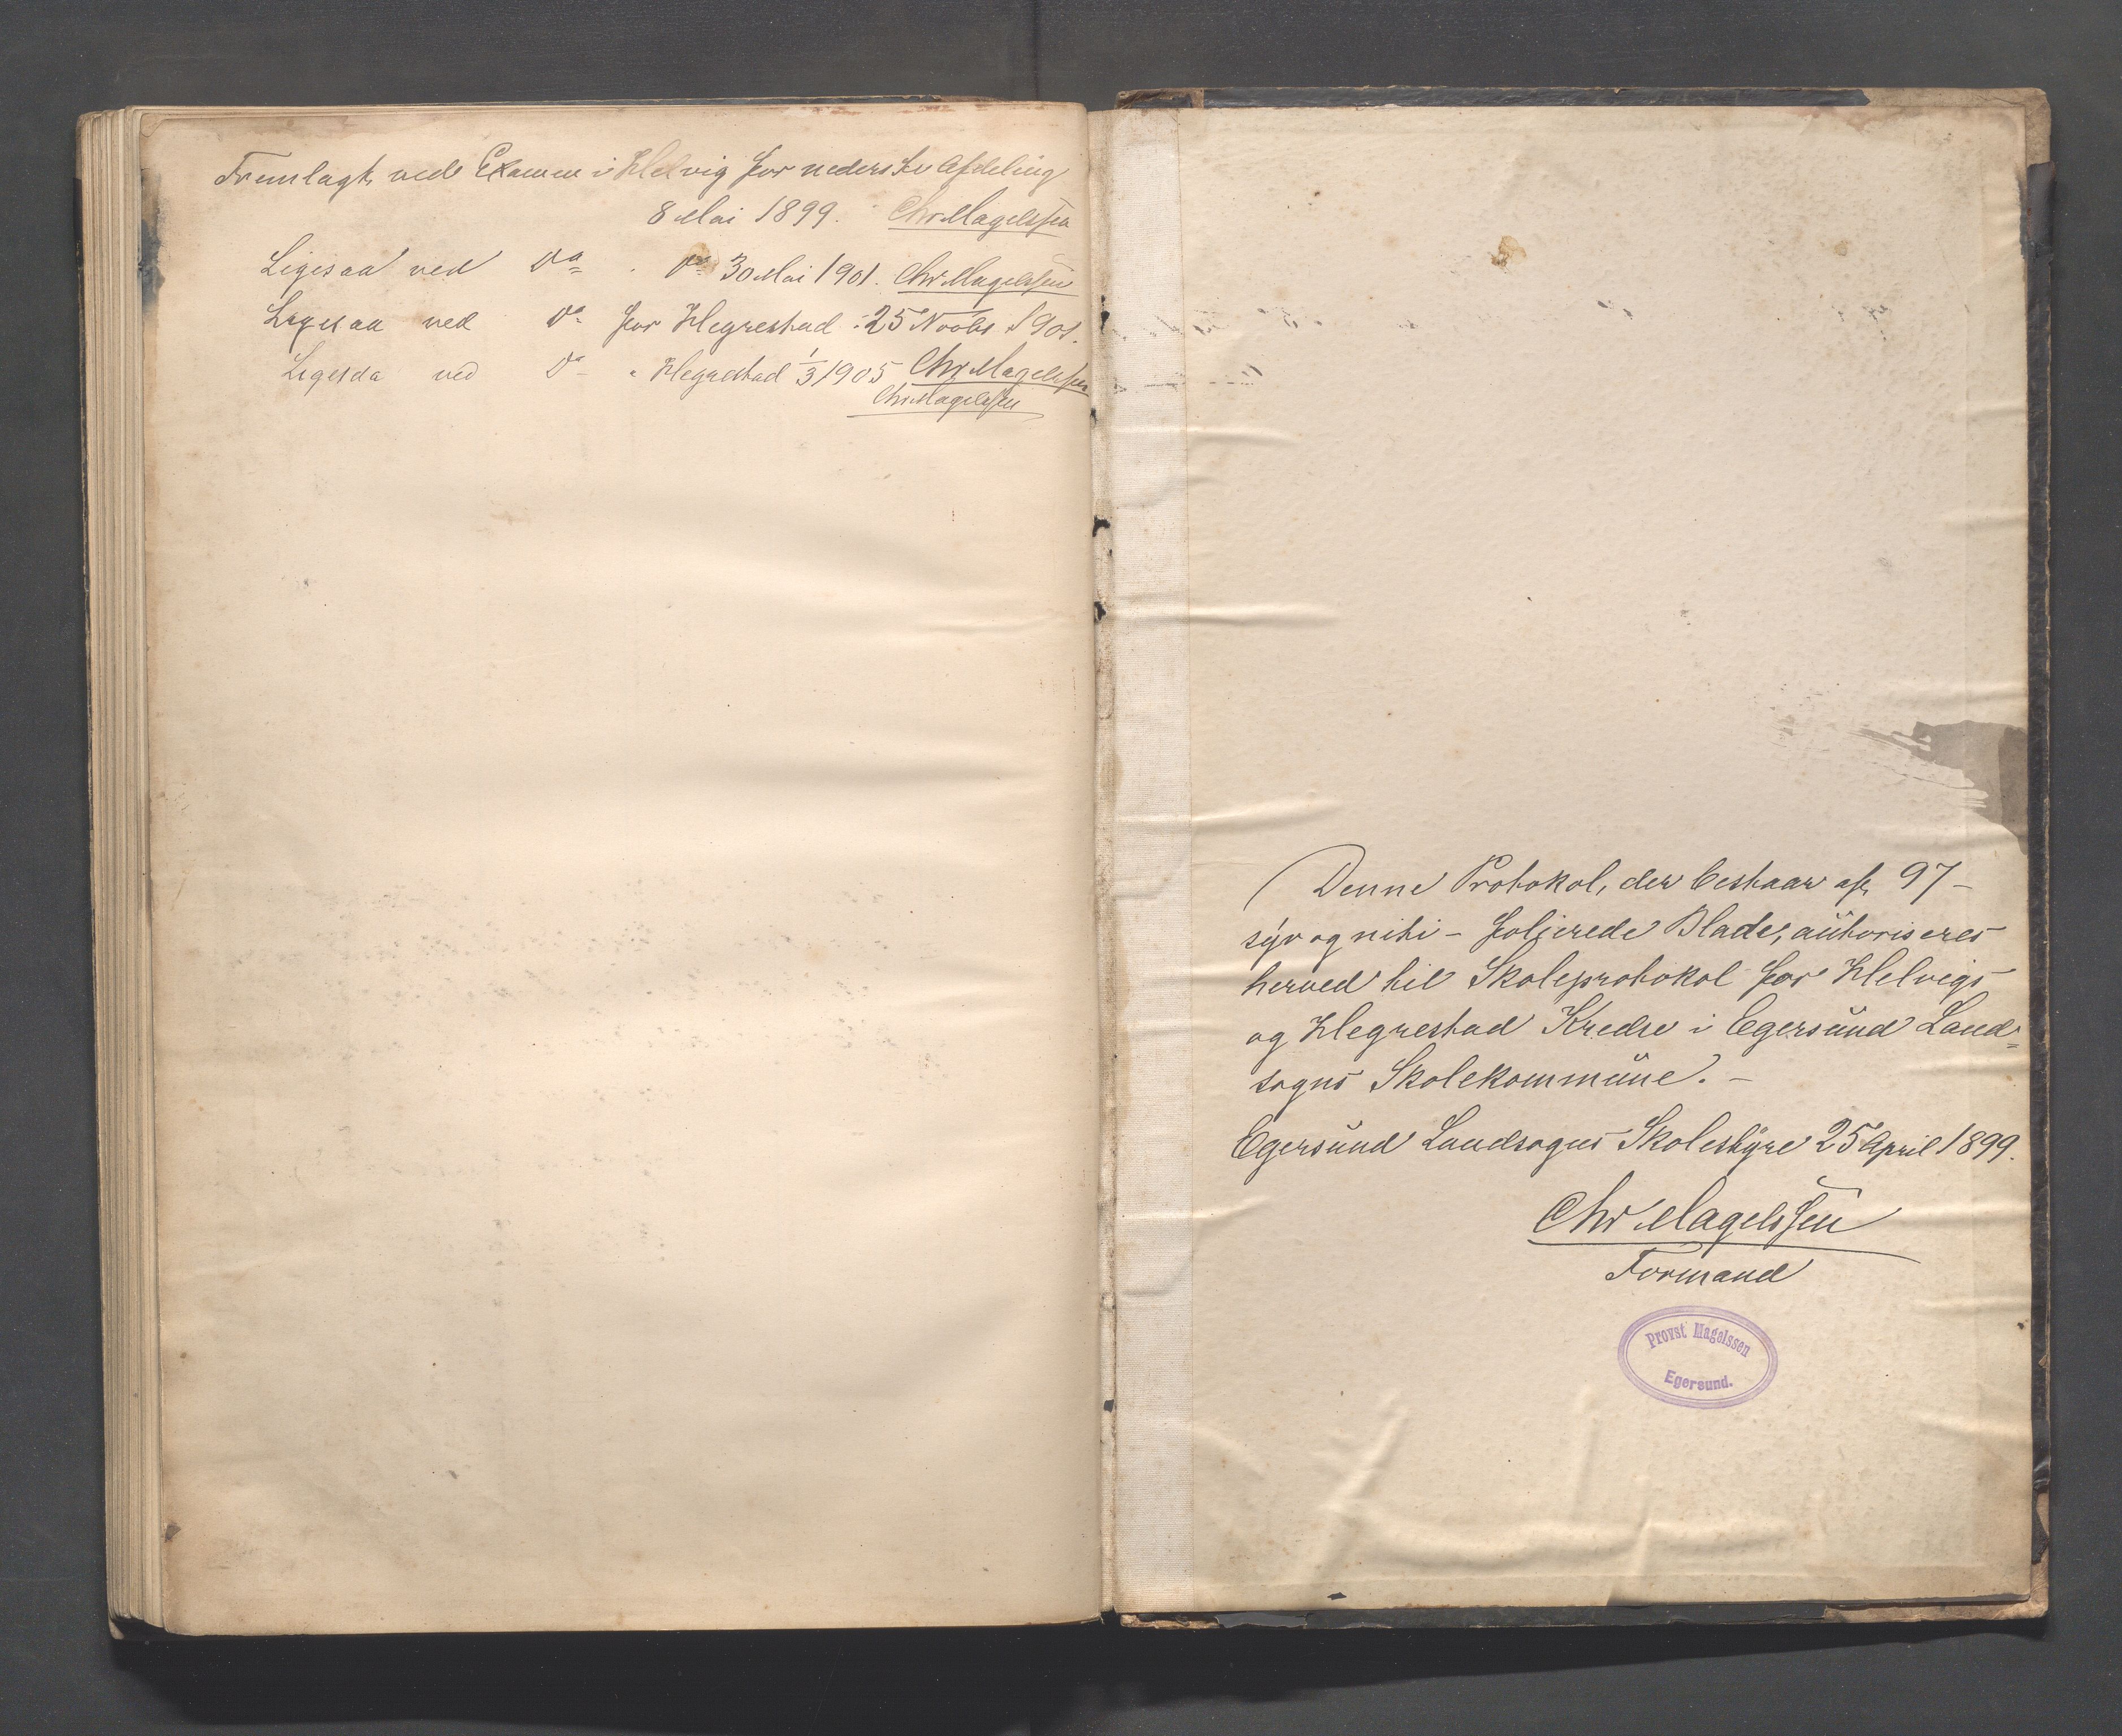 Fremlagt ved Examen i Helvig for nederste Afdeling
8 Mai 1899. Chr Magelssen
Ligesaa ved Do . Do 30 Mai 1901. Chr Magelssen
Ligesaa ved Do for Hegrestad : 25 Novbr 1901.
Chr Magelssen
Ligesaa ved Do " Hegrestad 1/3 1905
Chr Magelssen
Denne Protokol, der bestaar af 97 –
syv og niti – folierede Blade, autoriseres
herved til Skoleprotokol for Helvigs
og Hegrestad Kredse i Egersund Land=
sogns Skolekommune. –
Egersund Landsogns Skolestyre 25 April 1899.
Chr Magelssen
Formand
Provst Magelssen
Egersund.